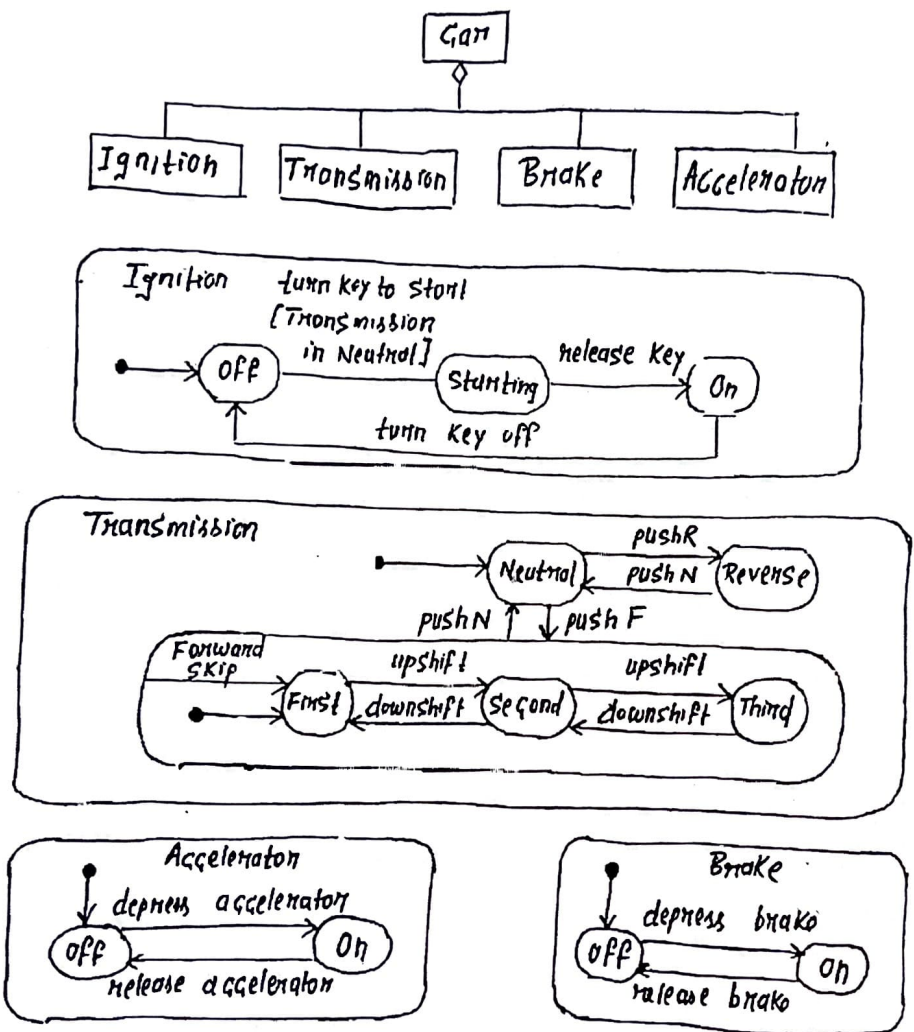 Car
Ignition
Transmission
Brake
Accelerator
Ignition
turn key to start
[Transmission
in Neutral]
release key
Off
Starting
On
turn key off
Transmission
pushR
Neutral
pushN
Reverse
pushN
push F
Forward
skip
upshift
upshift
First
downshift
Second
downshift
Third
Accelerator
depress accelerator
Off
On
release accelerator
Brake
depress brake
Off
On
release brake